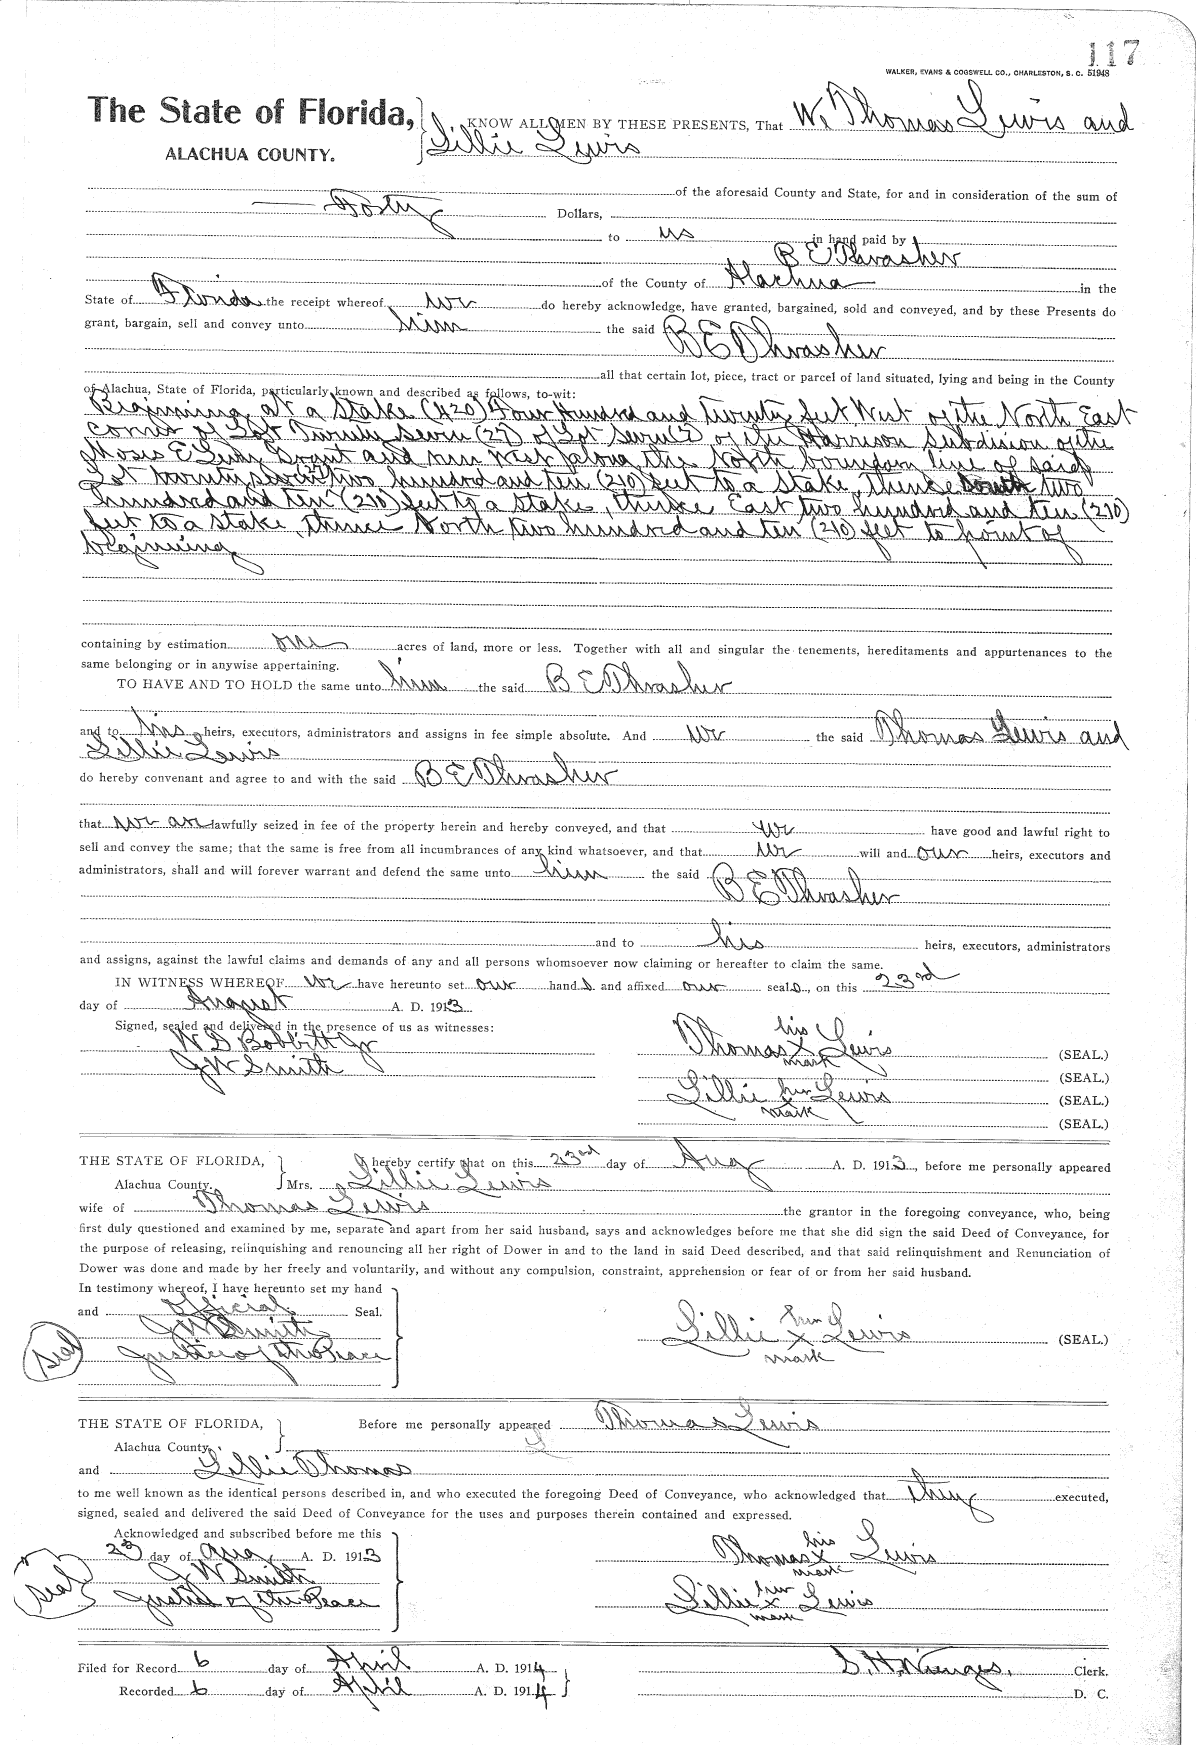 117
WALKER, EVANS & COGSWELL CO., CHARLESTON, S. C. 51948
The State of Florida, KNOW ALL MEN BY THESE PRESENTS, That We Thomas Lewis and
ALACHUA COUNTY. Lillie Lewis
of the aforesaid County and State, for and in consideration of the sum of
Forty Dollars,
to us in hand paid by
B E Thrasher
of the County of Alachua in the
State of Florida the receipt whereof we do hereby acknowledge, have granted, bargained, sold and conveyed, and by these Presents do
grant, bargain, sell and convey unto him the said B E Thrasher
all that certain lot, piece, tract or parcel of land situated, lying and being in the County
of Alachua, State of Florida, particularly known and described as follows, to-wit:
Beginning at a Stake (420) Four hundred and twenty feet West of the North East
corner of Lot Twenty Seven (27) of Lot Seven (7) of the Harrison Subdision of the
Moses E Levy Grant and run West along the North boundary line of said
Lot twenty seven (27) two hundred and ten (210) feet to a stake, thence South two
hundred and ten (210) feet to a stake, thence East two hundred and ten (210)
feet to a stake, thence North two hundred and ten (210) feet to point of
beginning
containing by estimation one acres of land, more or less. Together with all and singular the tenements, hereditaments and appurtenances to the
same belonging or in anywise appertaining.
TO HAVE AND TO HOLD the same unto him the said B E Thrasher
and to his heirs, executors, administrators and assigns in fee simple absolute. And we the said Thomas Lewis and
Lillie Lewis
do hereby convenant and agree to and with the said B E Thrasher
that we are lawfully seized in fee of the property herein and hereby conveyed, and that we have good and lawful right to
sell and convey the same; that the same is free from all incumbrances of any kind whatsoever, and that we will and our heirs, executors and
administrators, shall and will forever warrant and defend the same unto him the said B E Thrasher
and to his heirs, executors, administrators
and assigns, against the lawful claims and demands of any and all persons whomsoever now claiming or hereafter to claim the same.
IN WITNESS WHEREOF we have hereunto set our hand s and affixed our seal s, on this 23rd
day of August A. D. 1913
Signed, sealed and delivered in the presence of us as witnesses:
W S Bobbitt Jr
J W Smith
his
Thomas X Lewis (SEAL.)
mark
(SEAL.)
Lillie her Lewis (SEAL.)
X
mark
(SEAL.)
THE STATE OF FLORIDA, I hereby certify that on this 23rd day of Aug A. D. 1913, before me personally appeared
Alachua County. Mrs. Lillie Lewis
wife of Thomas Lewis the grantor in the foregoing conveyance, who, being
first duly questioned and examined by me, separate and apart from her said husband, says and acknowledges before me that she did sign the said Deed of Conveyance, for
the purpose of releasing, relinquishing and renouncing all her right of Dower in and to the land in said Deed described, and that said relinquishment and Renunciation of
Dower was done and made by her freely and voluntarily, and without any compulsion, constraint, apprehension or fear of or from her said husband.
In testimony whereof, I have hereunto set my hand
and official Seal.
J W Smith
Justice of the Peace
Seal
her
Lillie X Lewis (SEAL.)
mark
THE STATE OF FLORIDA, Before me personally appeared Thomas Lewis
Alachua County.
and Lillie Thomas
to me well known as the identical persons described in, and who executed the foregoing Deed of Conveyance, who acknowledged that they executed,
signed, sealed and delivered the said Deed of Conveyance for the uses and purposes therein contained and expressed.
Acknowledged and subscribed before me this
23 day of Aug A. D. 1913
J W Smith
Justice of the Peace
Seal
his
Thomas X Lewis
mark
her
Lillie X Lewis
mark
Filed for Record 6 day of April A. D. 1914
S. H. Wienges, Clerk.
Recorded 6 day of April A. D. 1914
D. C.